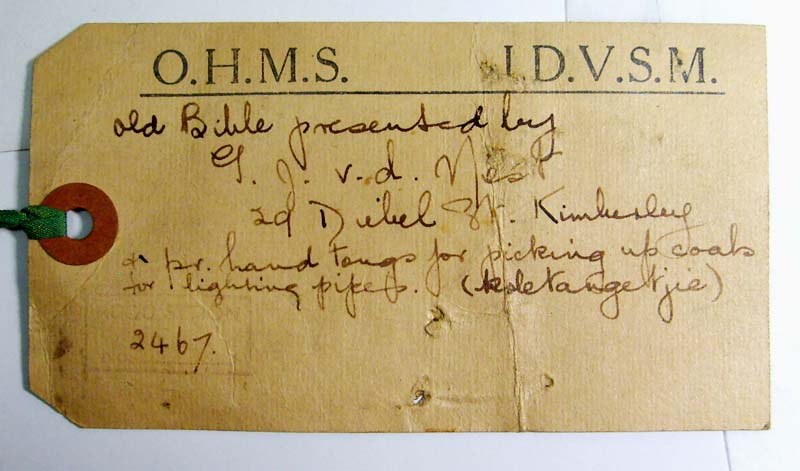 O.H.M.S. I.D.V.S.M.
old Bible presented by
G. J. v. d. Nest
29 Diebel St. Kimberley
& pr. hand tongs for picking up coals
for lighting pipes. (koletangetjie)
2467.